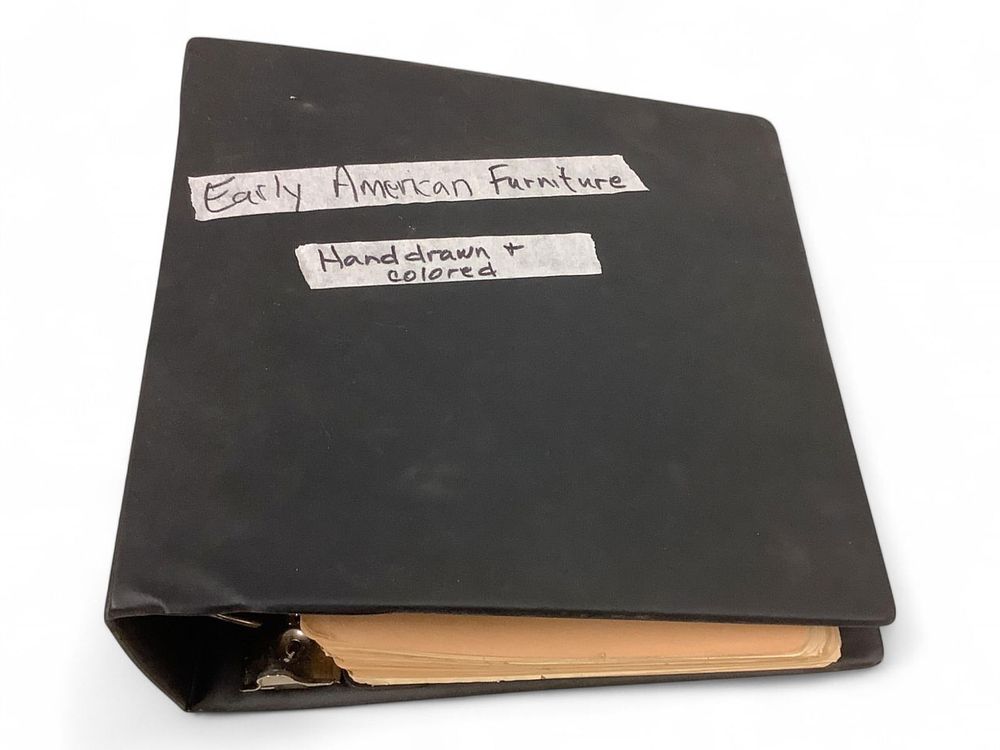 Early American Furniture
Hand drawn +
colored